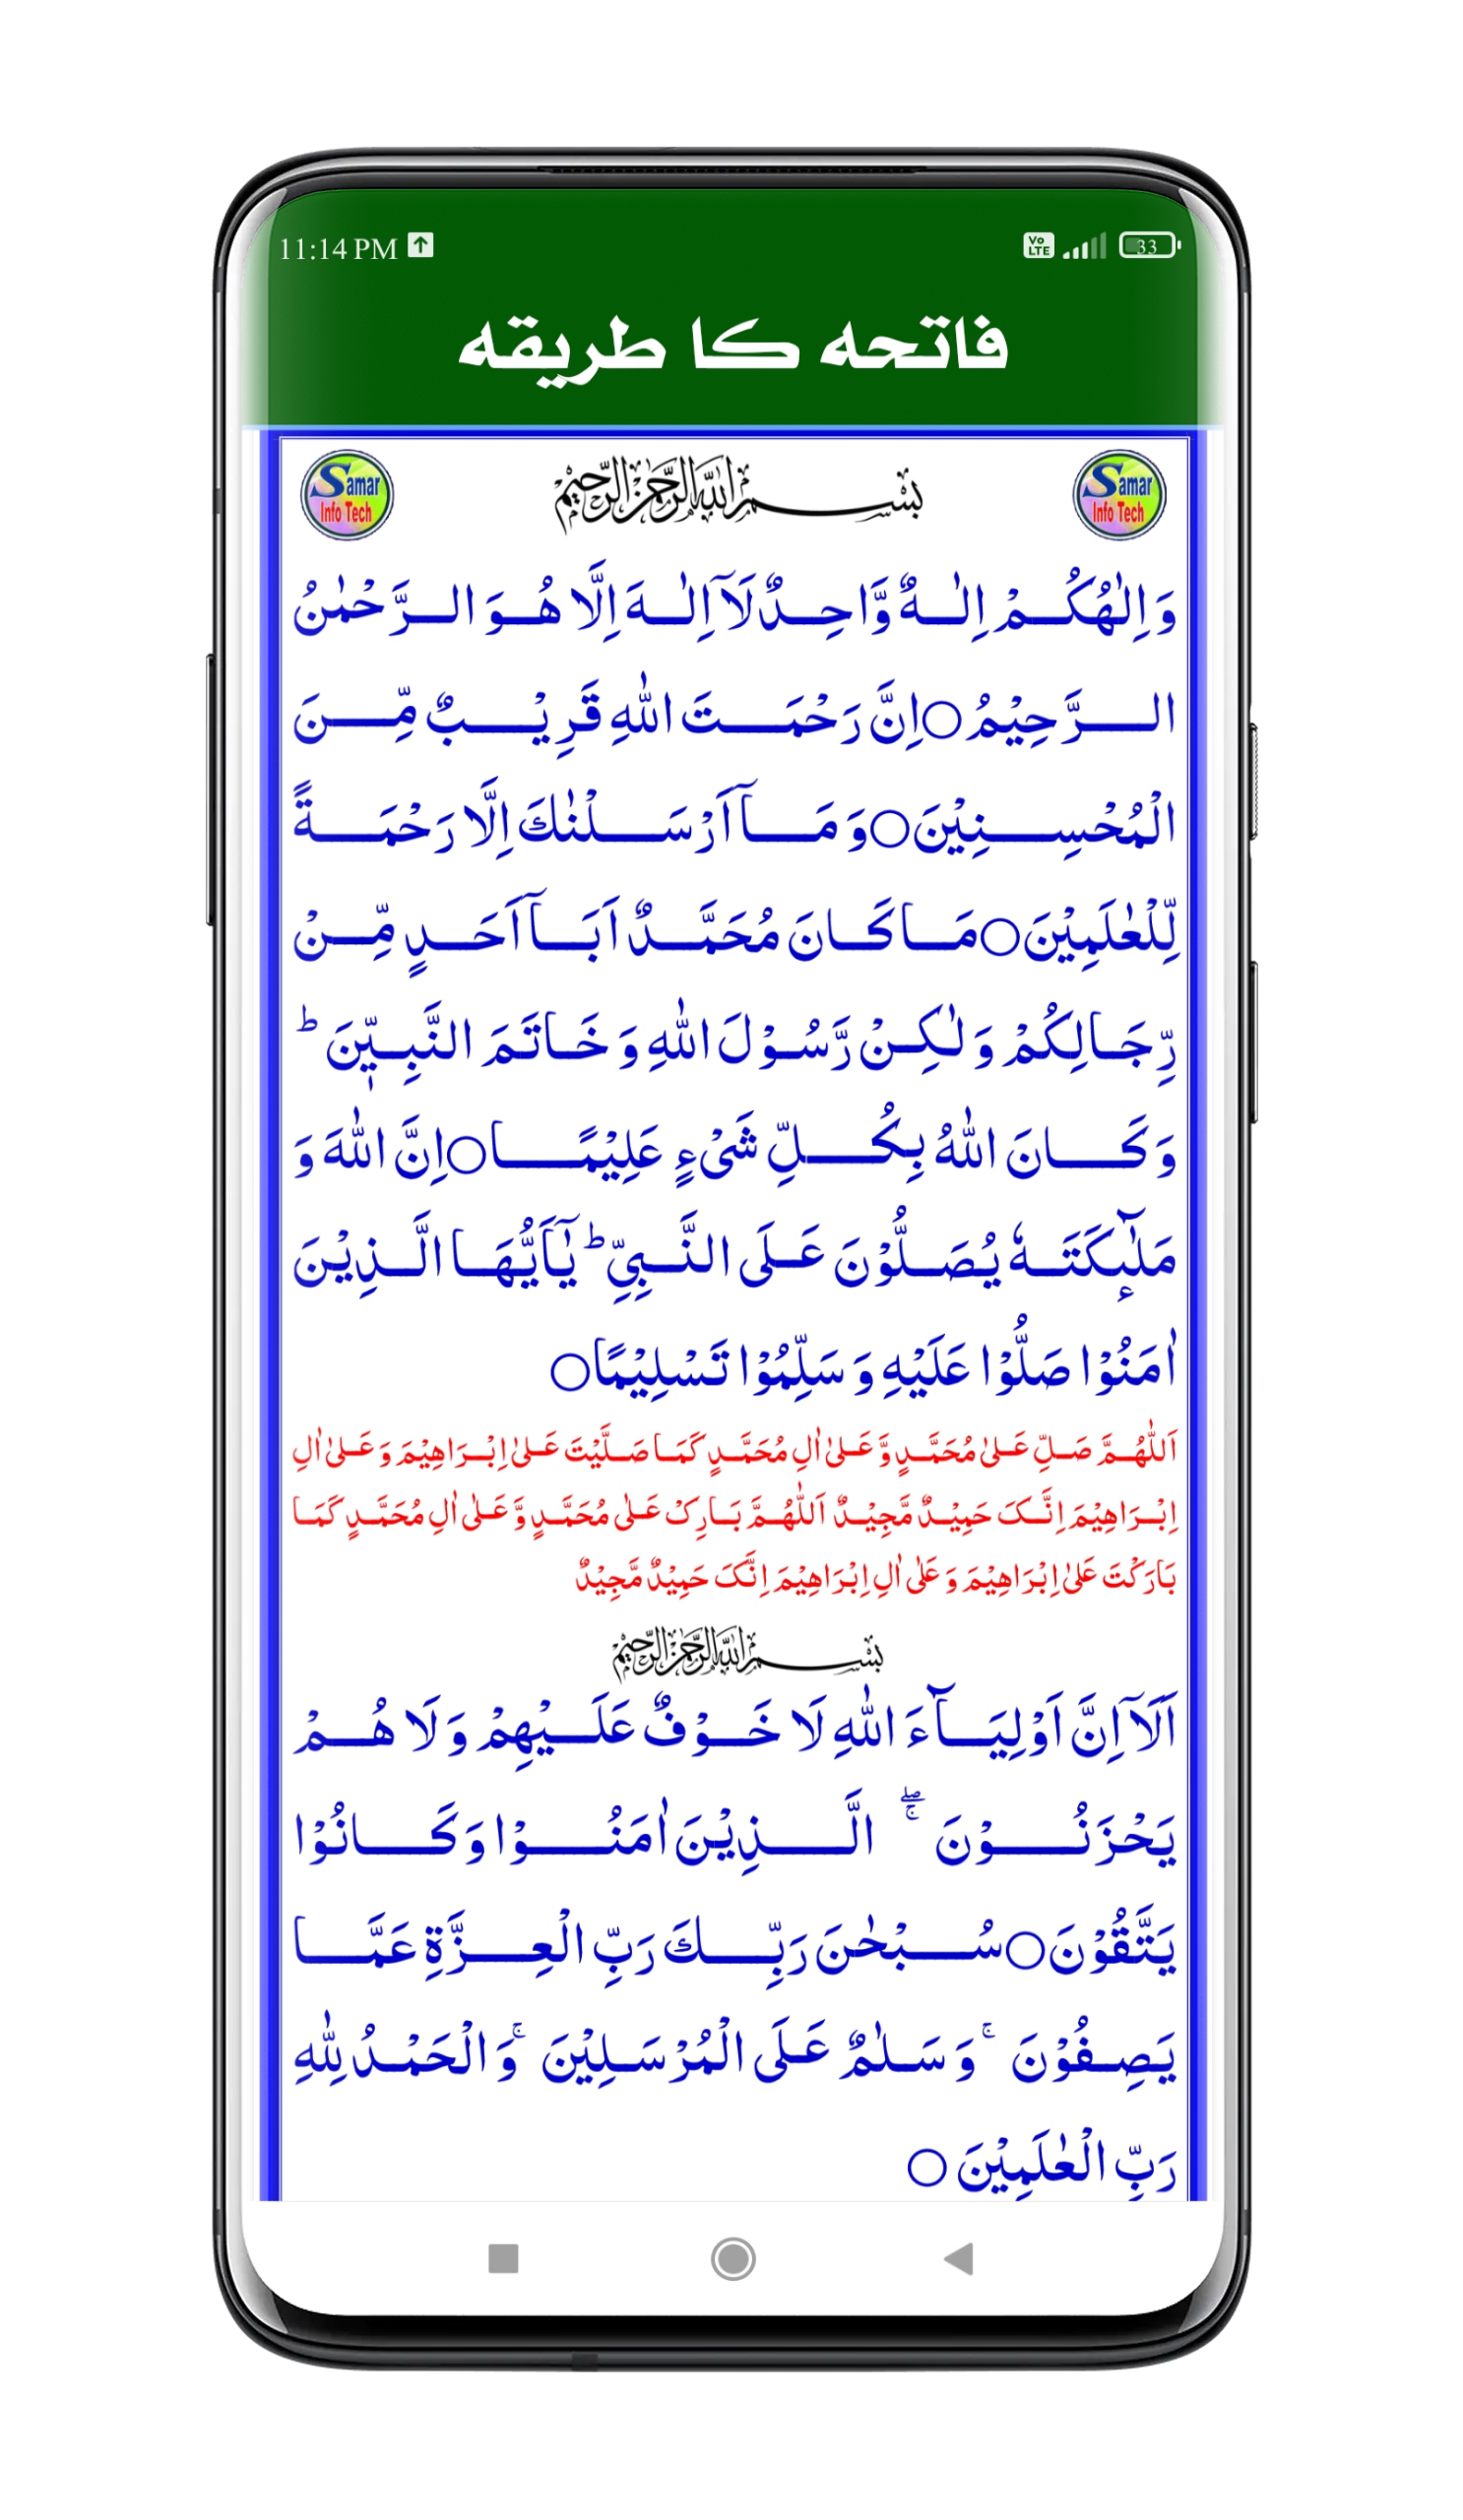 11:14 PM
Vo LTE
33
فاتحہ کا طریقہ
Samar Info Tech
بِسْمِ اللہِ الرَّحْمٰنِ الرَّحِیْمِ
Samar Info Tech
وَ اِلٰهُكُمْ اِلٰهٌ وَّاحِدٌ لَاۤ اِلٰهَ اِلَّا هُوَ الرَّحْمٰنُ
الرَّحِیْمُ○اِنَّ رَحْمَتَ اللّٰهِ قَرِیْبٌ مِّنَ
الْمُحْسِنِیْنَ○وَ مَاۤ اَرْسَلْنٰكَ اِلَّا رَحْمَةً
لِّلْعٰلَمِیْنَ○مَا كَانَ مُحَمَّدٌ اَبَاۤ اَحَدٍ مِّنْ
رِّجَالِكُمْ وَ لٰكِنْ رَّسُوْلَ اللّٰهِ وَ خَاتَمَ النَّبِیّٖنَ ؕ
وَ كَانَ اللّٰهُ بِكُلِّ شَیْءٍ عَلِیْمًا○اِنَّ اللّٰهَ وَ
مَلٰٓىِٕكَتَهٗ یُصَلُّوْنَ عَلَى النَّبِیِّ ؕ یٰۤاَیُّهَا الَّذِیْنَ
اٰمَنُوْا صَلُّوْا عَلَیْهِ وَ سَلِّمُوْا تَسْلِیْمًا○
اَللّٰهُمَّ صَلِّ عَلیٰ مُحَمَّدٍ وَّ عَلیٰ اٰلِ مُحَمَّدٍ کَمَا صَلَّیْتَ عَلیٰ اِبْرَاهِیْمَ وَ عَلیٰ اٰلِ
اِبْرَاهِیْمَ اِنَّکَ حَمِیْدٌ مَّجِیْدٌ اَللّٰهُمَّ بَارِکْ عَلیٰ مُحَمَّدٍ وَّ عَلیٰ اٰلِ مُحَمَّدٍ کَمَا
بَارَکْتَ عَلیٰ اِبْرَاهِیْمَ وَ عَلیٰ اٰلِ اِبْرَاهِیْمَ اِنَّکَ حَمِیْدٌ مَّجِیْدٌ
بِسْمِ اللہِ الرَّحْمٰنِ الرَّحِیْمِ
اَلَاۤ اِنَّ اَوْلِیَآءَ اللّٰهِ لَا خَوْفٌ عَلَیْهِمْ وَ لَا هُمْ
یَحْزَنُوْنَ ۚۖ الَّذِیْنَ اٰمَنُوْا وَ كَانُوْا
یَتَّقُوْنَ○سُبْحٰنَ رَبِّكَ رَبِّ الْعِزَّةِ عَمَّا
یَصِفُوْنَ ۚ وَ سَلٰمٌ عَلَى الْمُرْسَلِیْنَ ۚ وَ الْحَمْدُ لِلّٰهِ
رَبِّ الْعٰلَمِیْنَ ○